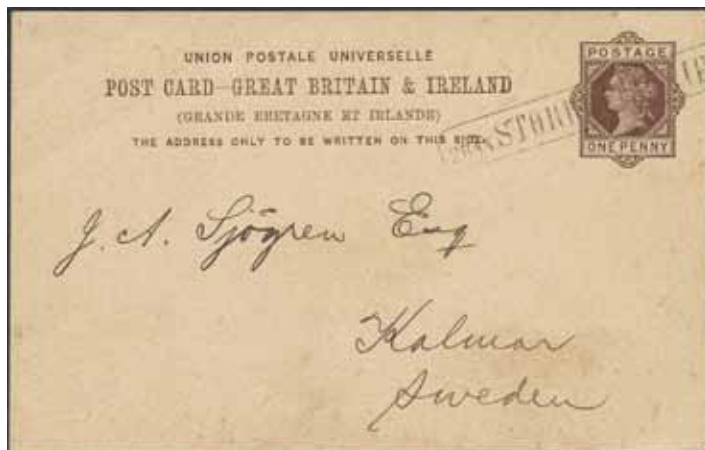 UNION POSTALE UNIVERSELLE
POST CARD—GREAT BRITAIN & IRELAND
(GRANDE BRETAGNE ET IRLANDE)
THE ADDRESS ONLY TO BE WRITTEN ON THIS SIDE.
POSTAGE
ONE PENNY
J. A. Sjögren Esq
Kalmar
Sweden